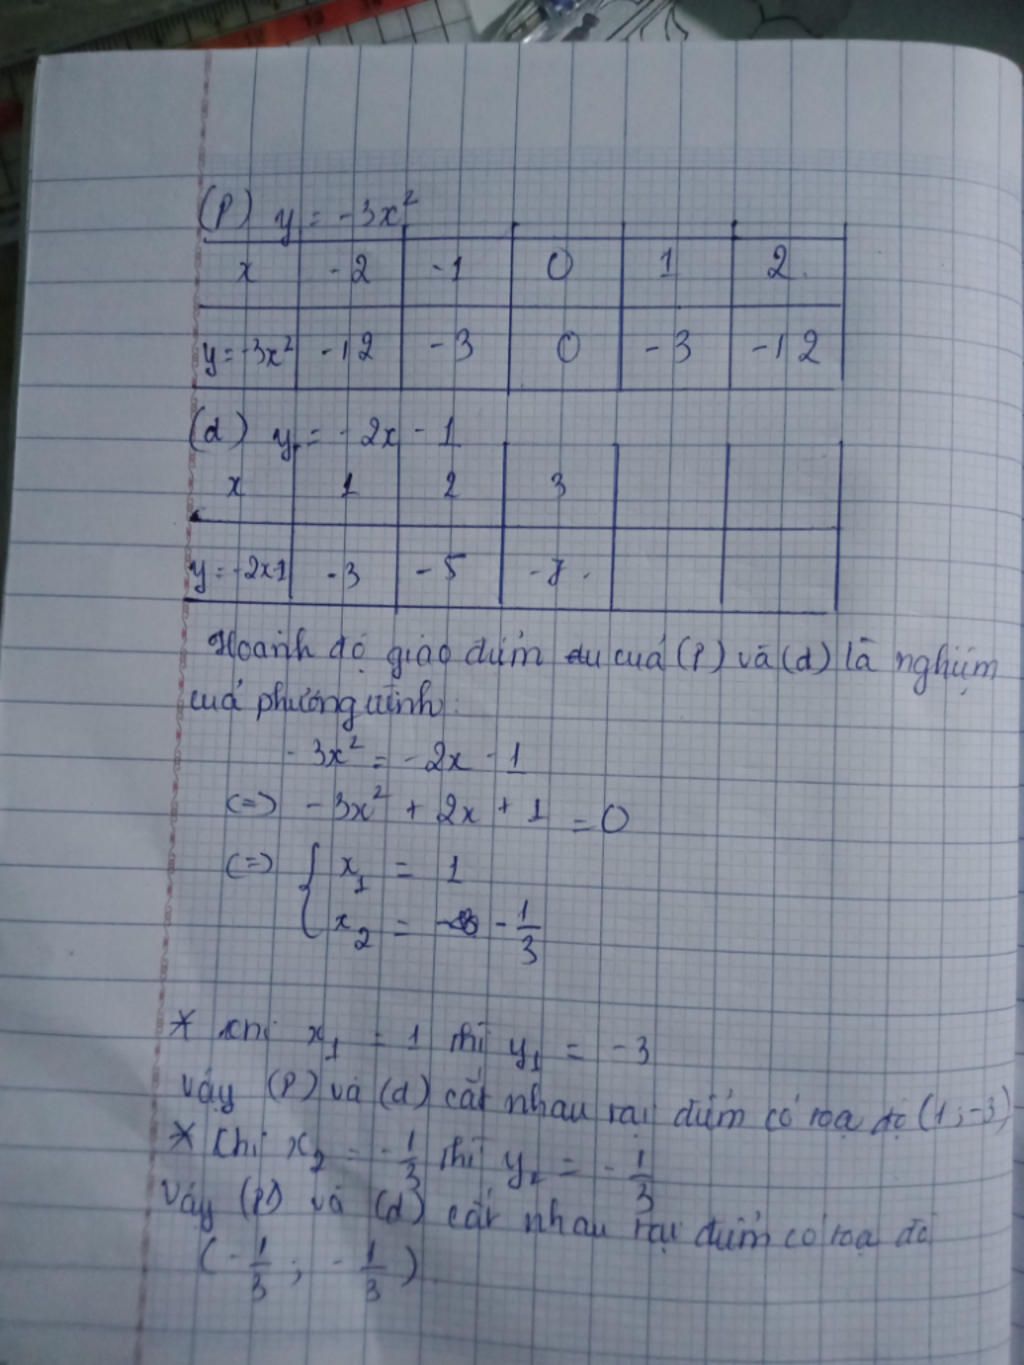 (P) y = -3x²
x -2 -1 0 1 2
y = -3x² -12 -3 0 -3 -12
(d) y = -2x - 1
x 1 2 3
y = -2x-1 -3 -5 -7
Hoành độ giao điểm của (P) và (d) là nghiệm
của phương trình:
-3x² = -2x - 1
<=> -3x² + 2x + 1 = 0
<=> { x₁ = 1
x₂ = -1/3
* Khi x₁ = 1 thì y₁ = -3
Vậy (P) và (d) cắt nhau tại điểm có toạ độ (1; -3)
* Khi x₂ = -1/3 thì y₂ = -1/3
Vậy (P) và (d) cắt nhau tại điểm có toạ độ
(-1/3; -1/3)